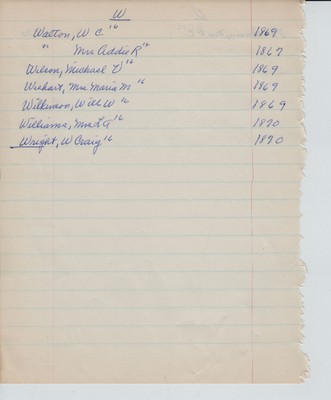 W
Walton, W C "16" 1869
" Mrs Addie R "16" 1867
Wilson, Michael D "16" 1869
Wrehart, Mrs Maria M "16" 1869
Wilkinson, Will W "16" 1869
Williams, Mrs L A "16" 1870
Wright, W Craig "16" 1870